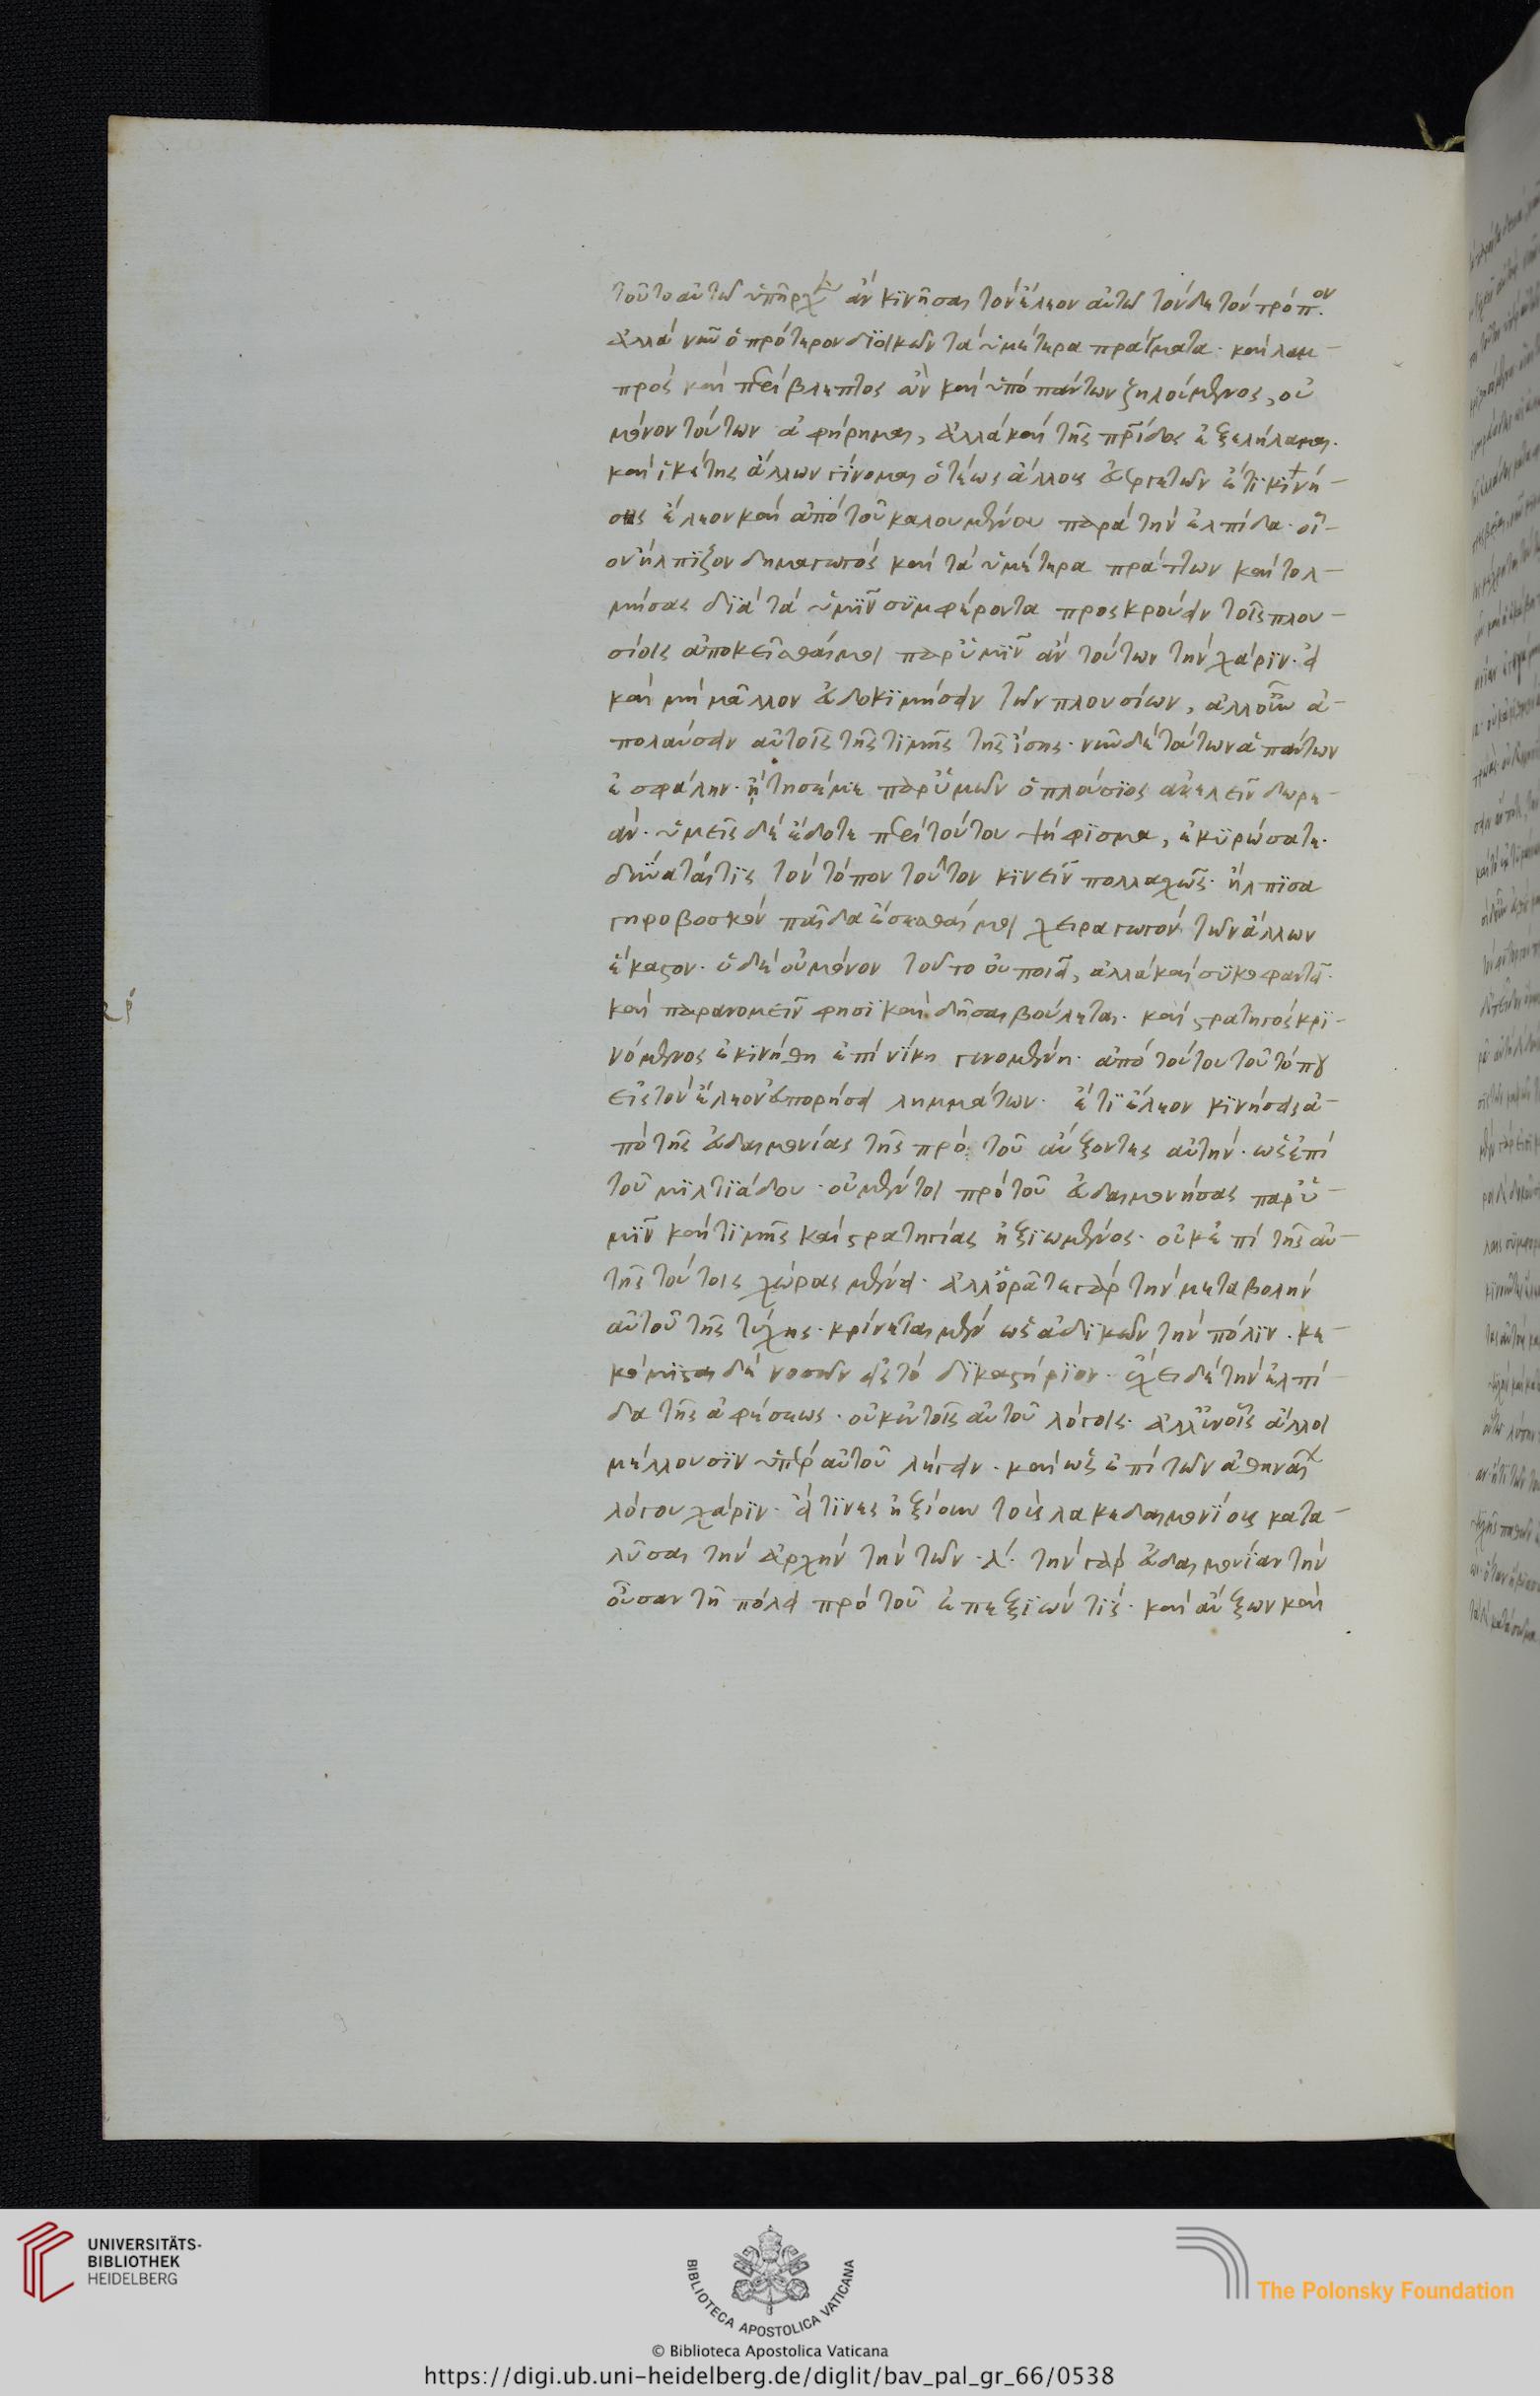 τοῦτο αὐτῶ ὑπῆρχεν ἂν κινῆσαι τὸν ἔλεον αὐτῶ τόνδε τὸν τρόπον.
ἀλλὰ νῦν ὁ πρότερον διοικῶν τὰ ὑμέτερα πράγματα· καὶ λαμ-
πρὸς καὶ περίβλεπτος ὢν καὶ ὑπὸ πάντων ζηλούμενος, οὐ
μόνον τούτων ἀφήρημαι, ἀλλὰ καὶ τῆς πρίδος ἐξελήλαμαι.
καὶ ἱκέτης ἄλλων γίνομαι ὁ τέως ἄλλους εὐεργετῶν ἔτι κινή-
σεις ἔλεον καὶ ἀπὸ τοῦ καλουμένου παρὰ τὴν ἐλπίδα· οἷ-
ον ἤλπιζον δημαγωγὸς καὶ τὰ ὑμέτερα πράττων καὶ τολ-
μήσας διὰ τὰ ὑμῖν συμφέροντα προσκρούειν τοῖς πλου-
σίοις ἀποκεῖσθαί μοι παρ' ὑμῖν ἂν τούτων τὴν χάριν· εἰ
καὶ μὴ μᾶλλον εὐδοκιμήσειν τῶν πλουσίων, ἀλλ' οὖν ἀ-
πολαύσειν αὐτοῖς τῆς τιμῆς τῆς ἴσης· νῦν δὲ τούτων ἁπάντων
ἐσφάλην· ᾔτησέ με παρ' ὑμῶν ὁ πλούσιος ἀνελεῖν δωρε-
άν· ὑμεῖς δὲ ἔδοτε περὶ τούτου ψήφισμα, ἐκυρώσατε.
δύναταί τις τὸν τόπον τοῦτον κινεῖν πολλαχῶς· ἤλπισα
γηροβοσκὸν παῖδα ἔσεσθαί μοι χειραγωγὸν τῶν ἄλλων
ἕκαστον· ὁ δὲ οὐ μόνον τοῦτο οὐ ποιεῖ, ἀλλὰ καὶ συκοφαντεῖ·
καὶ παρανομεῖν φησὶ καὶ δῆσαι βούλεται· καὶ στρατηγὸς κρι-
νόμενος ἐκινήθη ἐπὶ νίκη γενομένη· ἀπὸ τούτου τοῦ τόπου
εἰς τὸν ἔλεον εὐπορήσει λημμάτων· ἔτι ἔλεον κινήσεις ἀ-
πὸ τῆς εὐδαιμονίας τῆς πρὸ τοῦ αὔξοντες αὐτήν· ὡς ἐπὶ
τοῦ μιλτιάδου· οὐ μέντοι πρὸ τοῦ εὐδαιμονήσας παρ' ὑ-
μῖν καὶ τιμῆς καὶ στρατηγίας ἠξιωμένος· οὐκ ἐπὶ τῆς αὐ-
τῆς τούτοις χώρας μένει· ἀλλ' ὁρᾶτε γὰρ τὴν μεταβολὴν
αὐτοῦ τῆς τύχης· κρίνεται μὲν ὡς ἀδικῶν τὴν πόλιν· κε-
κόμισται δὲ νοσῶν εἰς τὸ δικαστήριον· ἔχει δὲ τὴν ἐλπί-
δα τῆς ἀφέσεως· οὐκ ἐν τοῖς αὐτοῦ λόγοις· ἀλλ' ἐν οἷς ἄλλοι
μέλλουσιν ὑπὲρ αὐτοῦ λέγειν· καὶ ὡς ἐπὶ τῶν ἀθηναίων
λόγου χάριν· εἴ τινες ἠξίουν τοὺς λακεδαιμονίους κατα-
λῦσαι τὴν ἀρχὴν τὴν τῶν ·λ´· τὴν γὰρ εὐδαιμονίαν τὴν
οὖσαν τῆ πόλει πρὸ τοῦ ἐπεξιών τις· καὶ αὔξων καὶ
UNIVERSITÄTS-
BIBLIOTHEK
HEIDELBERG
BIBLIOTECA APOSTOLICA VATICANA
The Polonsky Foundation
© Biblioteca Apostolica Vaticana
https://digi.ub.uni-heidelberg.de/diglit/bav_pal_gr_66/0538